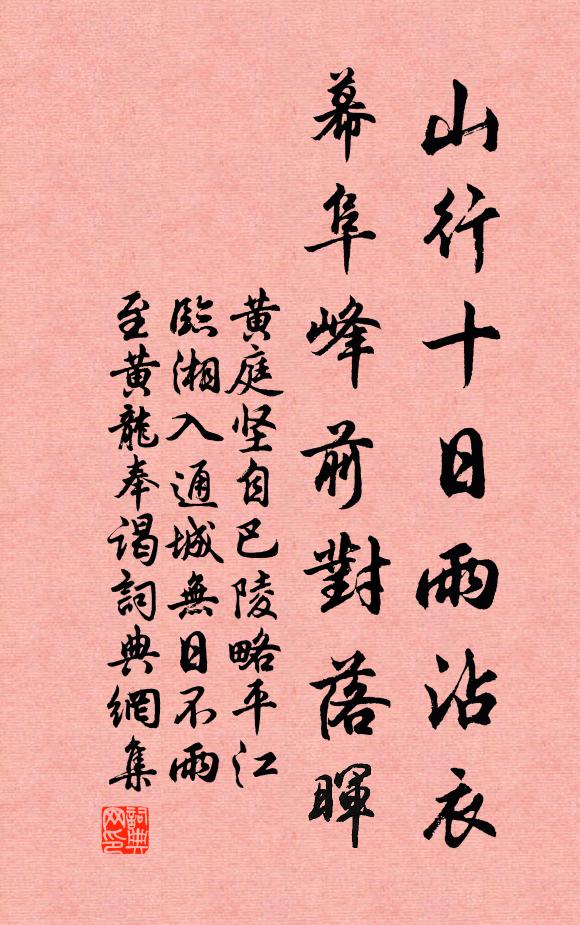 山行十日雨沾衣
幕阜峰前對落暉
黄庭坚自巴陵略平江
臨湘入通城無日不雨
至黄龍奉謁詞典網集
詞典网印